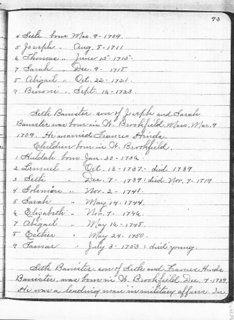 73
4 Seth born Mar. 9 - 1709.
5 Joseph " Aug. 5 - 1711
6 Thomas " June 15 - 1715.
7 Sarah " Dec. 9 - 1718
8 Abigail " Oct. 22 - 1721.
9 Benoni " Sept. 16 - 1723
Seth Banister son of Joseph and Sarah
Banister was born in W. Brookfield Mass. Mar. 9
1709. He married Frances Hinds.
Children born in W. Brookfield.
1 Huldah born Jan. 23 - 1736
2 Lemuel " Oct. 13 - 1737. died 1739
3 Seth " Dec. 7 - 1739
4 Solomon " Nov. 2 - 1741.
5 Sarah " May 14. 1744.
6 Elizabeth " Nov. 7 - 1746.
7 Abigail " May 16 - 1748.
8 Esther " May 24 - 1750
9 Tamar " July 3 - 1753. died young.
Seth Banister son of Seth and Frances Hinds
Banister, was born in W. Brookfield, Dec. 7 - 1739.
He was a leading man in military affairs. In